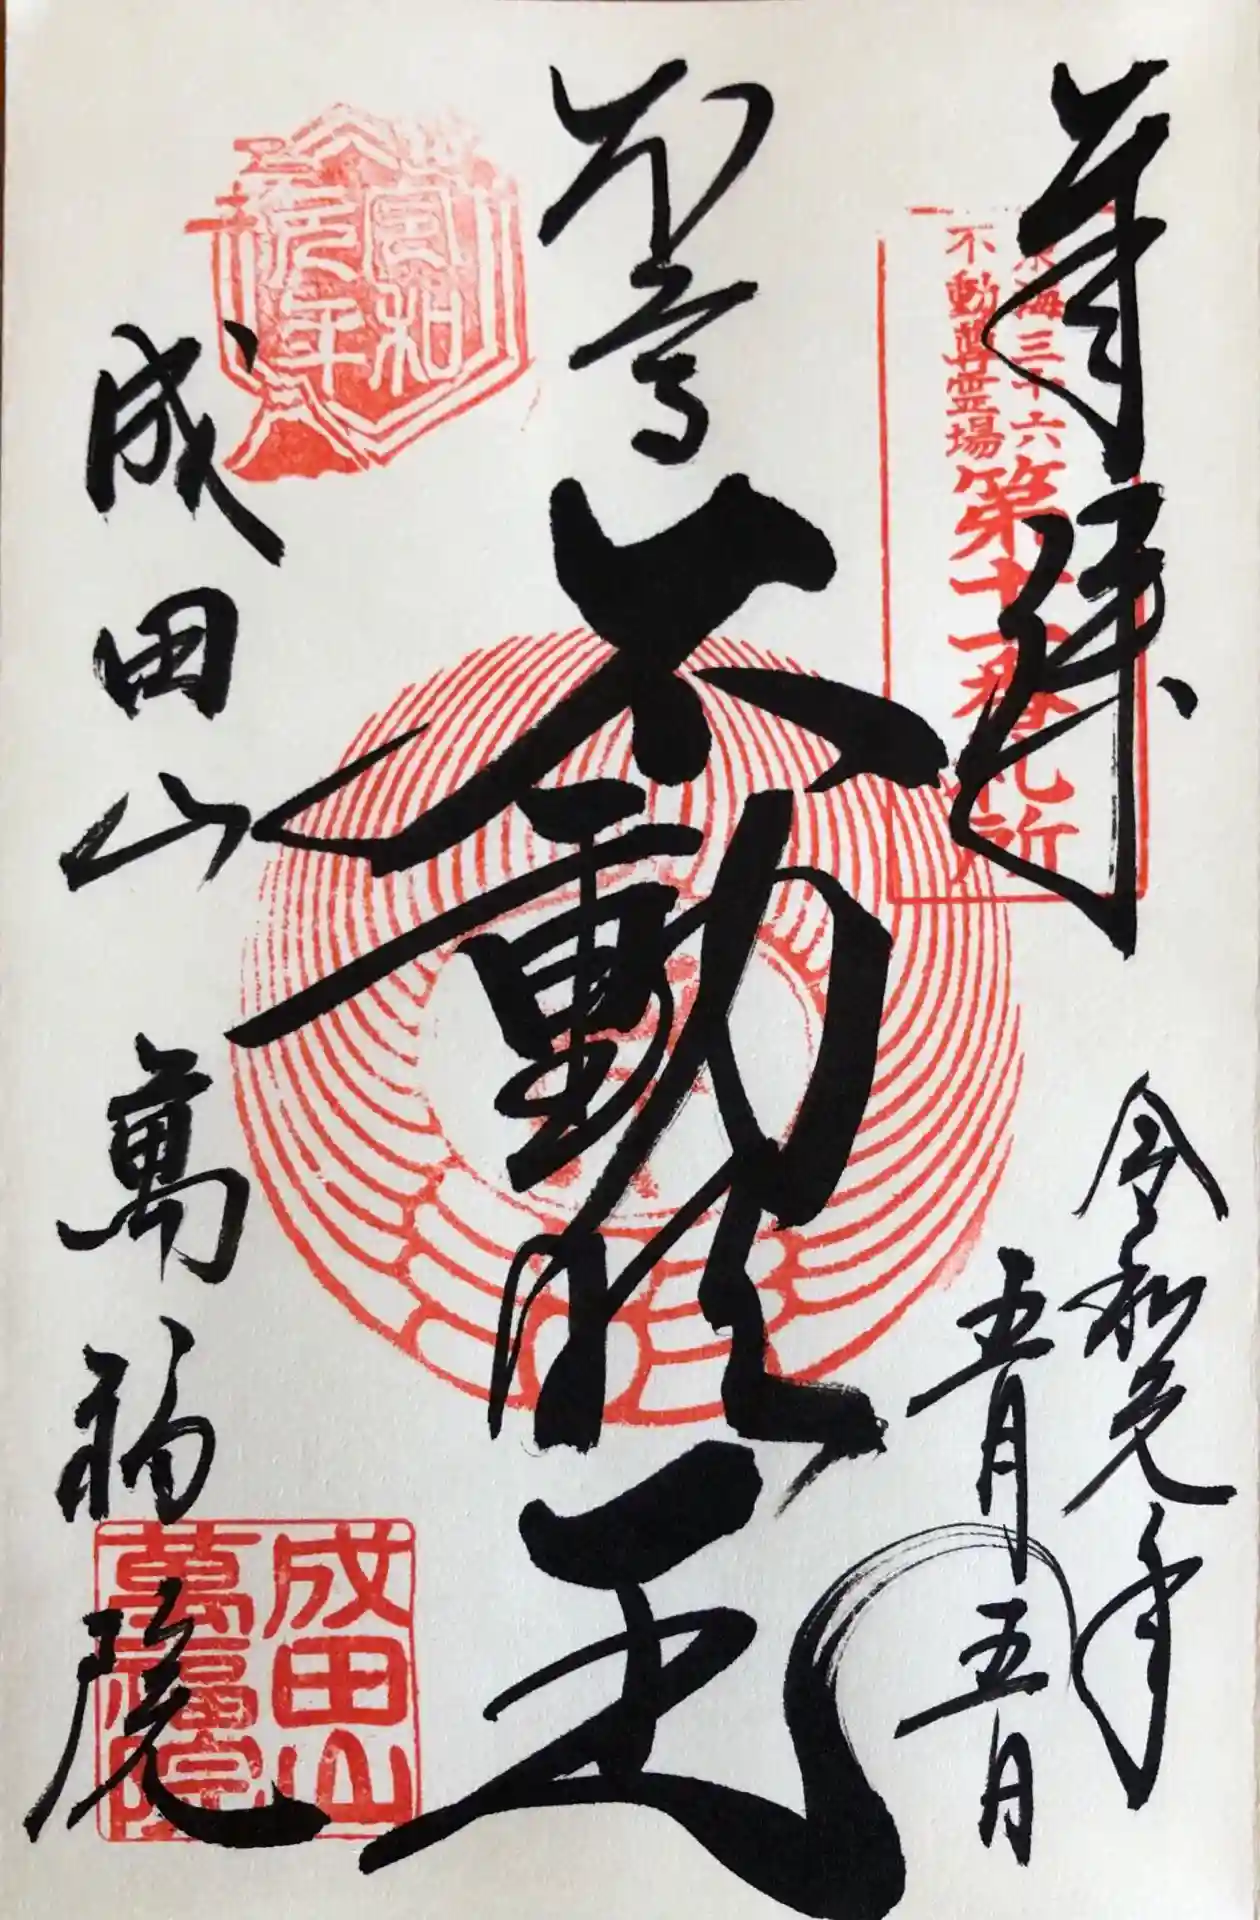 奉拝
東海三十六
不動尊霊場
第十一番札所
令和元年
五月五日
本尊
不動明王
令和
元年
成田山萬福院
成田山
萬福院